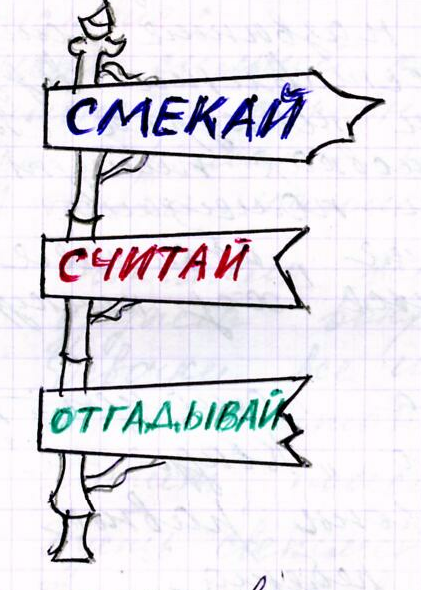 СМЕКАЙ
СЧИТАЙ
ОТГАДЫВАЙ